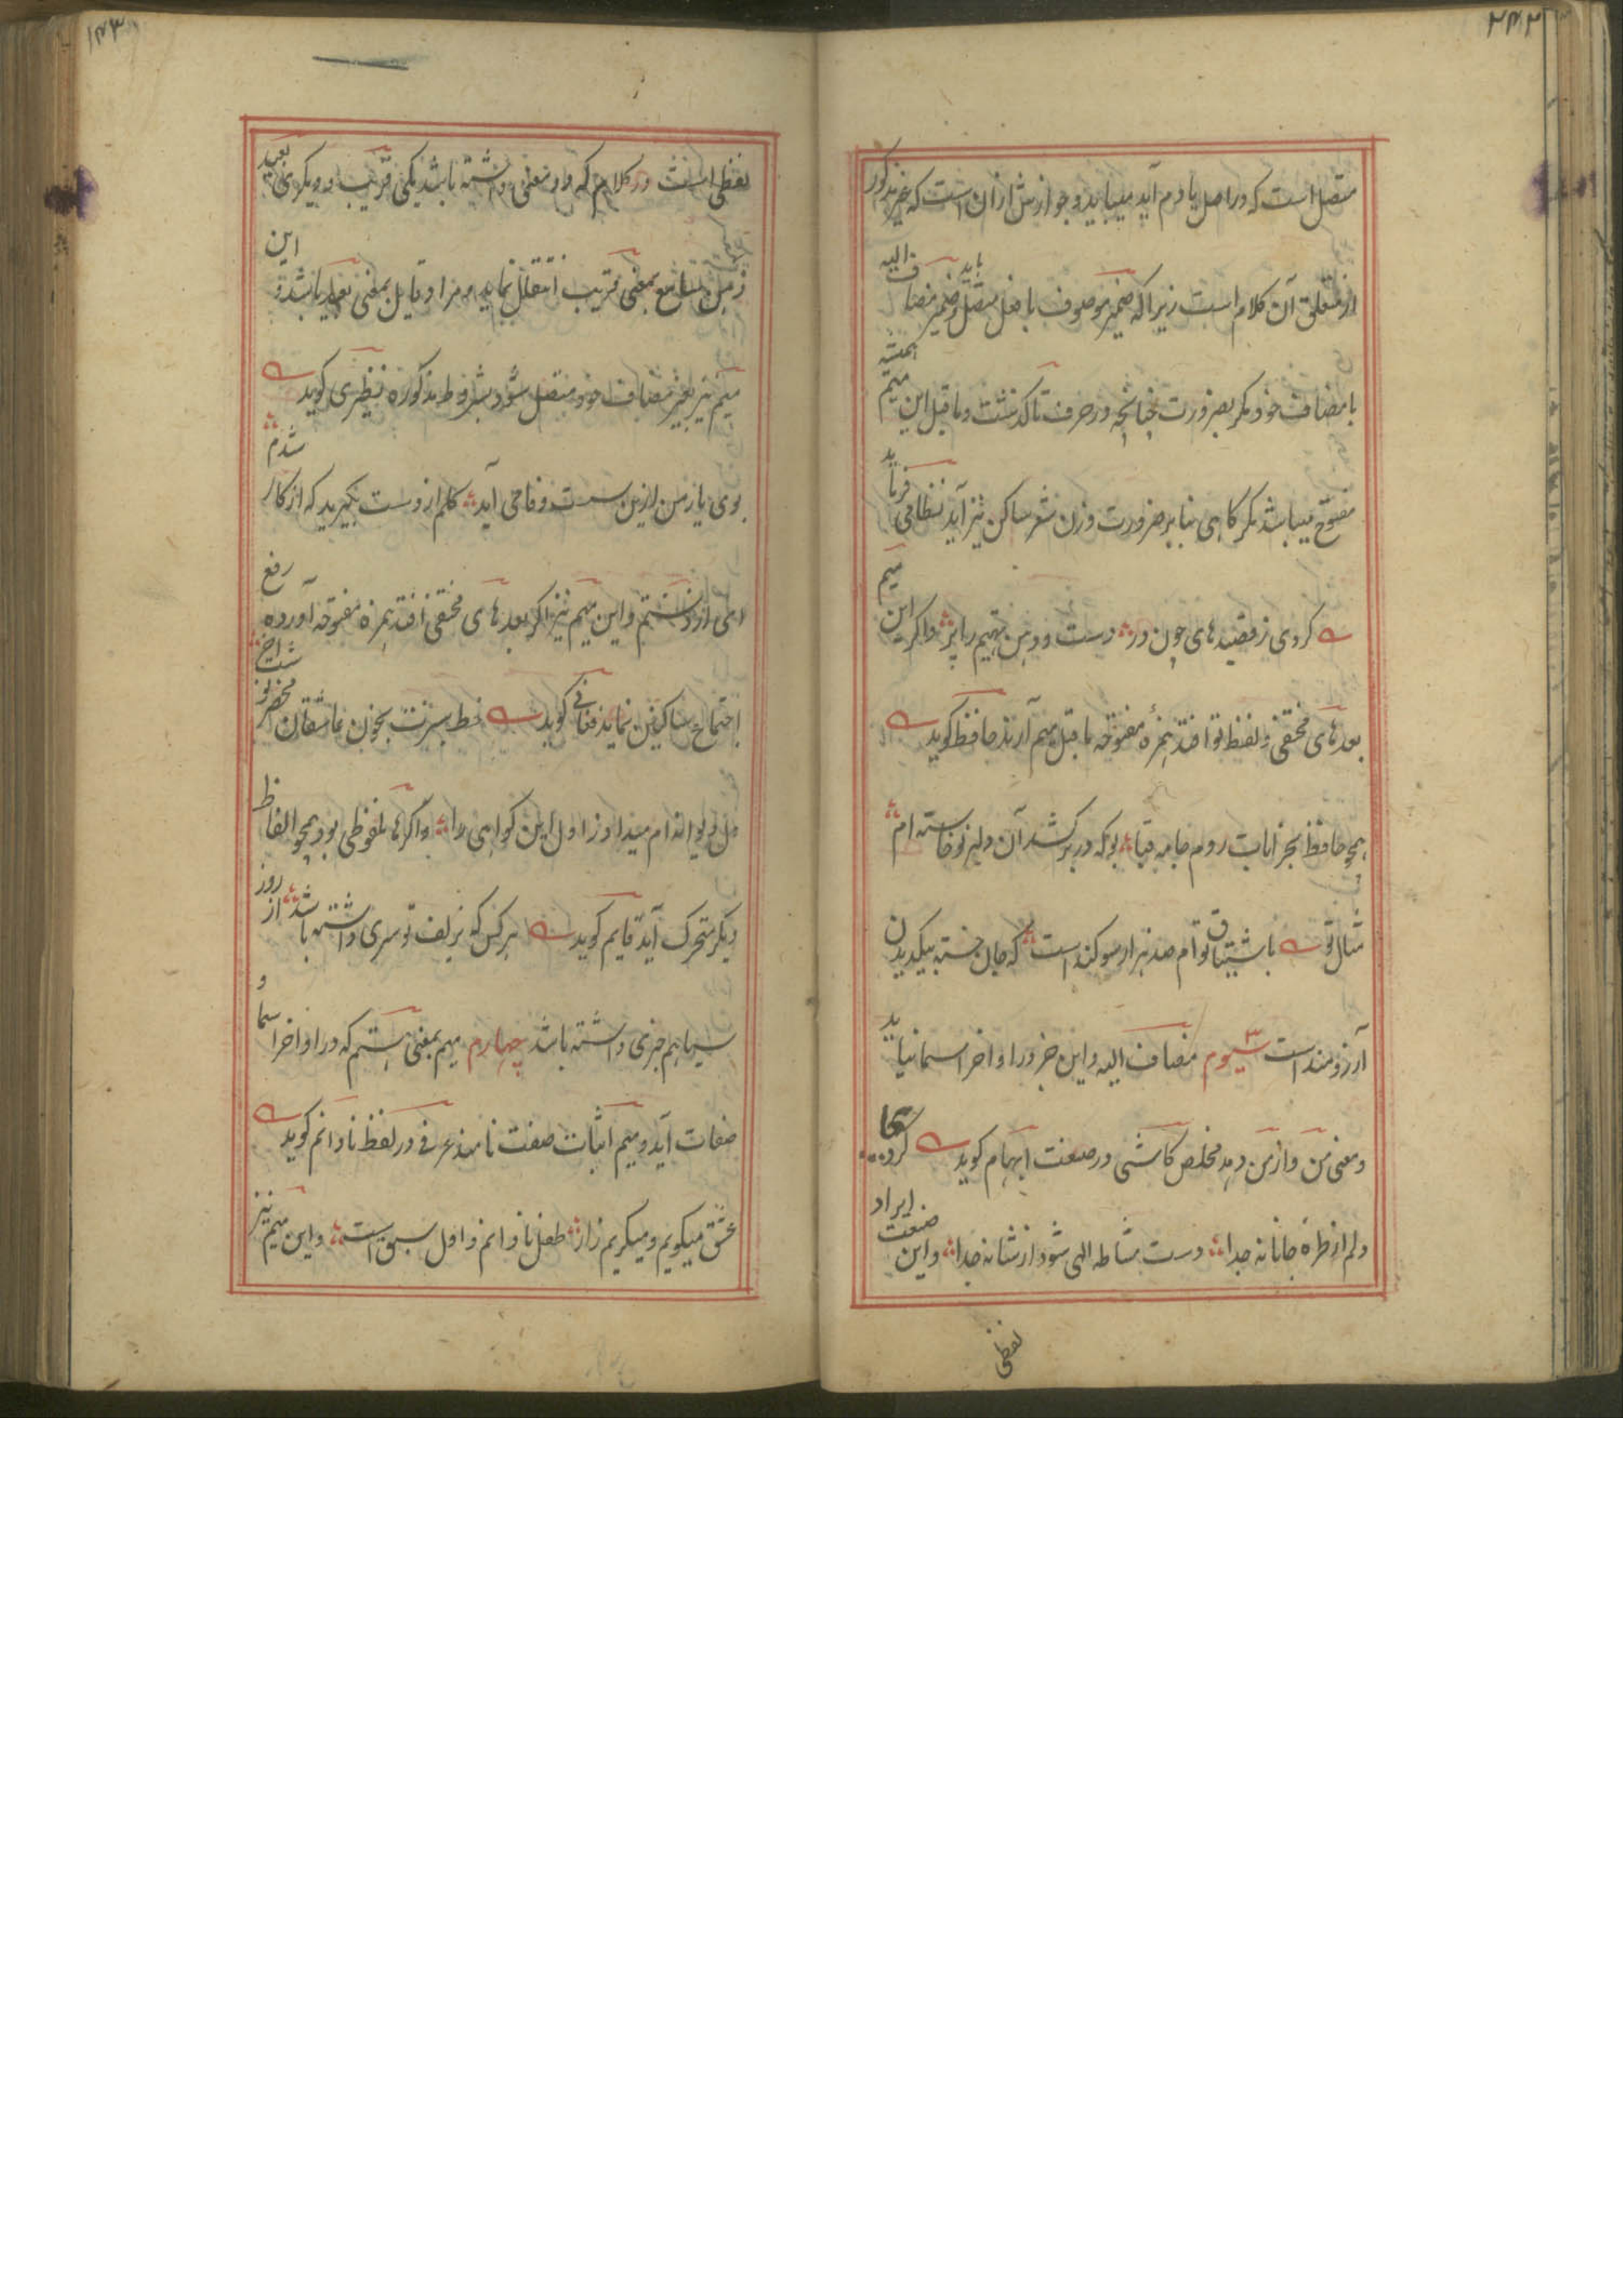 ۲۴۲
متصل است که در اصل یا دم آید میباید و جوازش ازان است که خبر مذکور
از متعلق آن کلام است زیرا که ضمیر موصوف با فعل متصل باید و ضمیر مضاف الیه
با مضاف خود مگر بضرورت چنانچه در حرف تا گذشت و ما قبل این میم همیشه
مفتوح میباشد مگر کاهی بنا بر ضرورت وزن شعر ساکن نیز آید نظامی فرماید
کردی ز قصیدهای چون در دست و دهن تهیم را پر و اگر این میم
بعد های مختفی و لفظ تو افتد همزهٔ مفتوحه ما قبل میم آرند حافظ کوید
همچو حافظ بخرابات روم جامه قبا بو که در بر کشد آن دلبر نوخاسته ام
مثال تو باشتیاق توام صد هزار سوکند است که جان خسته بیک دیدن
آرزومند است سیوم ۳ مضاف الیه و این خبر در اواخر اسما نیاید
و معنی من و از من دهد مخلص کاشی در صنعت ایهام کوید کرد
دلم از طره جانانه جدا دست مشاطه الهی شود از شانه جدا و این صنعت ایراد
لفظی
۱۴۳
لفظی است در کلام که او دو معنی داشته باشد یکی قریب و دیگری بعید
ذهن سامع بمعنی قریب انتقال نماید و مراد قایل بمعنی بعید باشد و این
میم نیز بغیر مضاف خود متصل شود بشروط مذکوره نظیری کوید
بوی یار من ازین سست وفا می آید کلم از دست بگیرید که از کار شدم
ای از دستم و این میم نیز اگر بعد های مختفی افتد همزه مفتوحه آورده رفع
اجتماع ساکنین نماید فغانی کوید خط سبزت بخون عاشقان محضر نوشت آخر
دل دیوانه ام میداد ز اول این کواهی را و اگر ها ملفوظی بود همچو الفاظ
دیگر متحرک آید قایم کوید هر کس که بزلف تو سری داشته باشد از روز
سیاهم خبری داشته باشد چهارم میم بمعنی هستم که در اواخر اسما و
صفات آید و میم اثبات صفت نامند عرفی در لفظ نادانم کوید
عشق میکویم و میکریم زار طفل نادانم و اول سبق است و این میم نیز